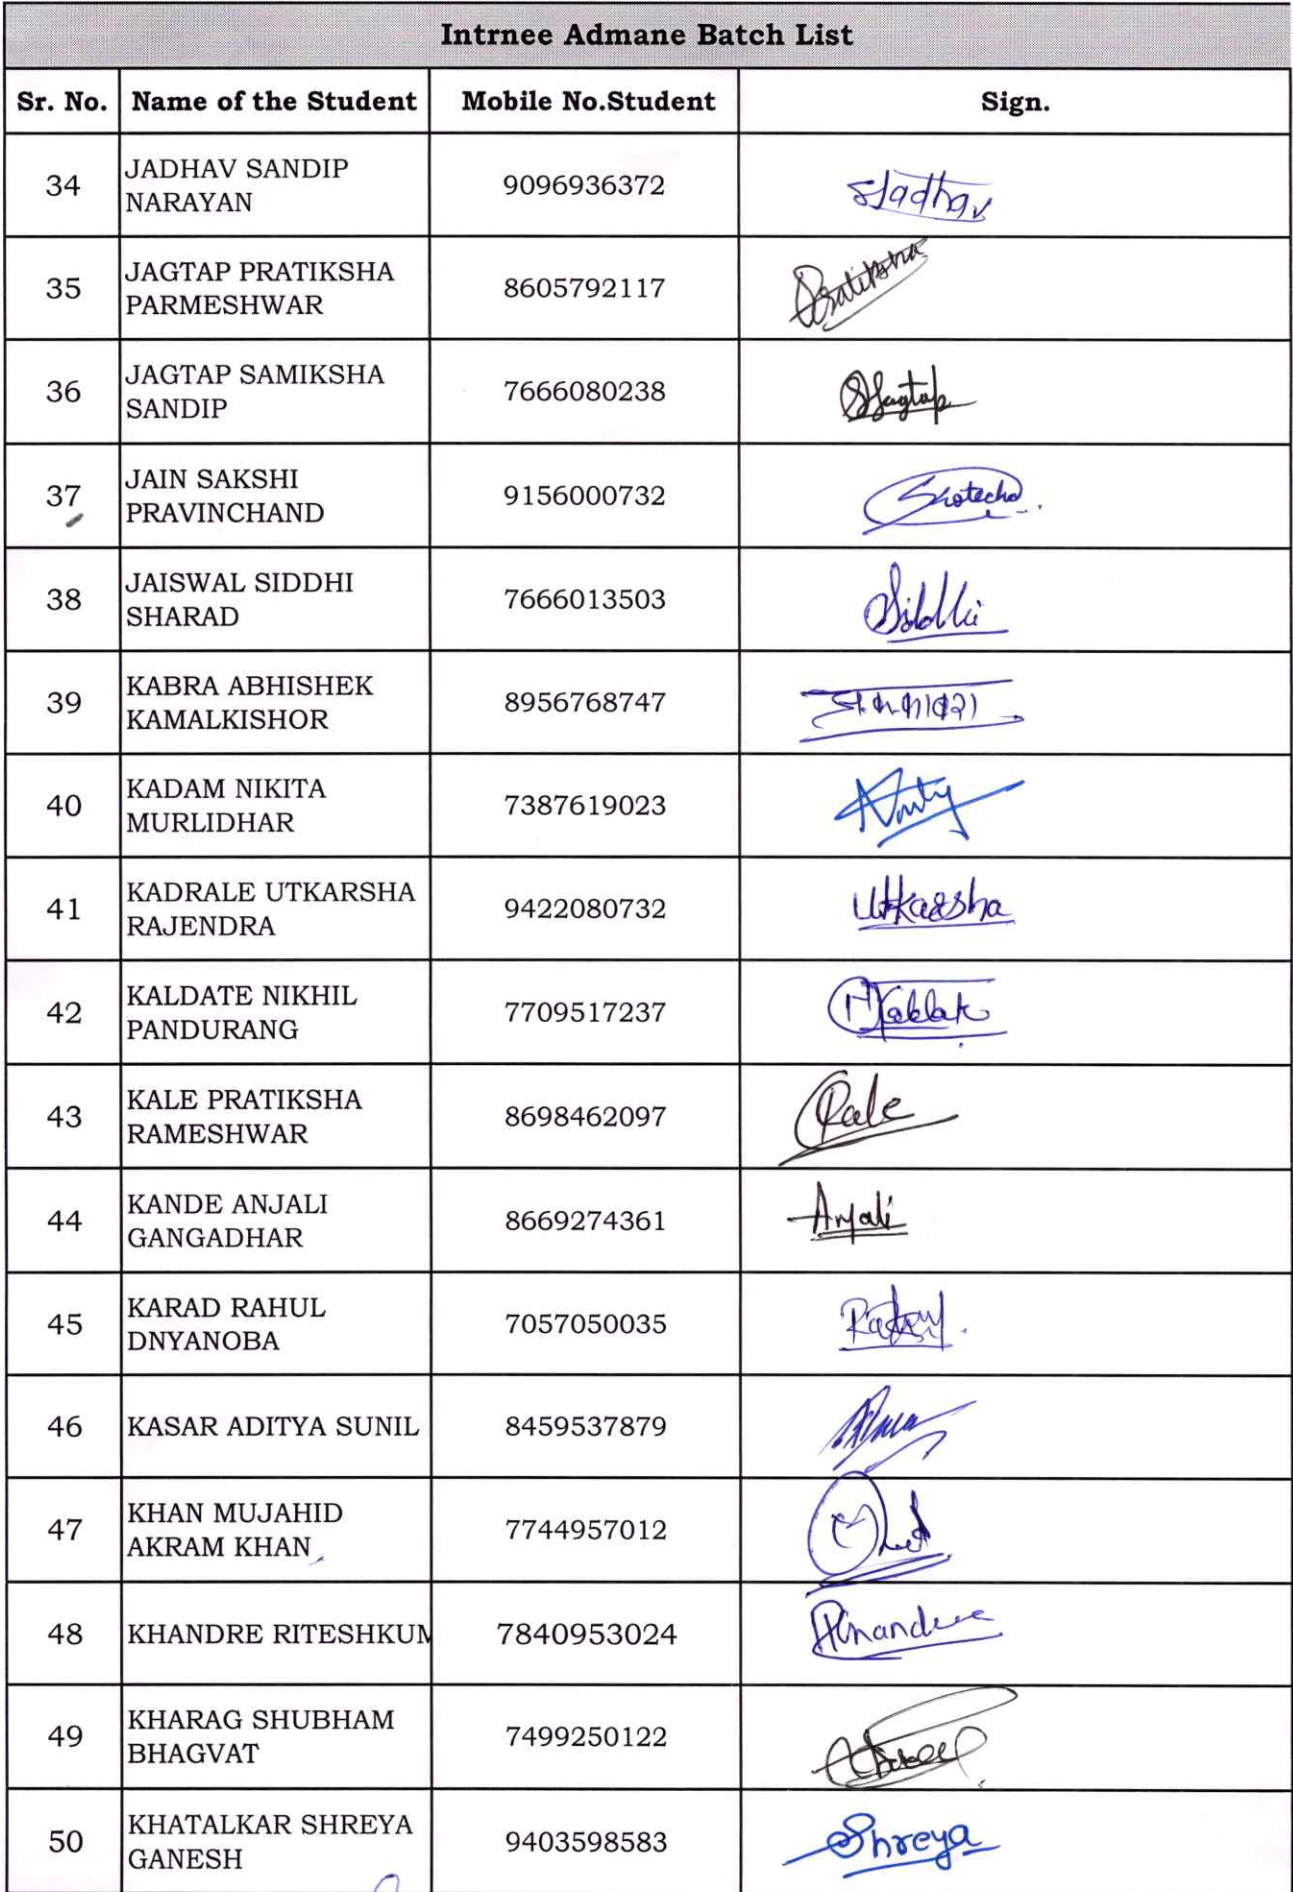 Intrnee Admane Batch List
Sr. No. Name of the Student Mobile No.Student Sign.
34 JADHAV SANDIP NARAYAN 9096936372 SJadhav
35 JAGTAP PRATIKSHA PARMESHWAR 8605792117 Pratiksha
36 JAGTAP SAMIKSHA SANDIP 7666080238 SJagtap
37 JAIN SAKSHI PRAVINCHAND 9156000732
38 JAISWAL SIDDHI SHARAD 7666013503 Siddhi
39 KABRA ABHISHEK KAMALKISHOR 8956768747
40 KADAM NIKITA MURLIDHAR 7387619023
41 KADRALE UTKARSHA RAJENDRA 9422080732 Utkarsha
42 KALDATE NIKHIL PANDURANG 7709517237
43 KALE PRATIKSHA RAMESHWAR 8698462097
44 KANDE ANJALI GANGADHAR 8669274361 Anjali
45 KARAD RAHUL DNYANOBA 7057050035
46 KASAR ADITYA SUNIL 8459537879
47 KHAN MUJAHID AKRAM KHAN 7744957012
48 KHANDRE RITESHKUM 7840953024
49 KHARAG SHUBHAM BHAGVAT 7499250122
50 KHATALKAR SHREYA GANESH 9403598583 Shreya